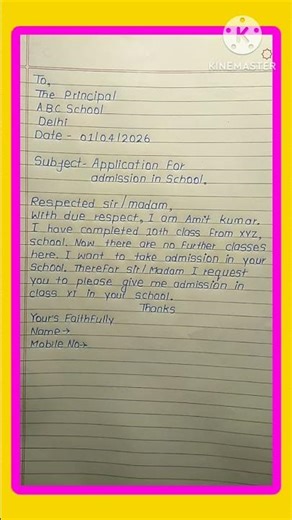 KINEMASTER
To,
The Principal
ABC School
Delhi
Date - 01/04/2026
Subject - Application For
admission in School.
Respected sir/madam,
With due respect, I am Amit Kumar.
I have completed 10th class From XYZ,
school. Now there are no Further classes
here. I want to take admission in your
School. ThereFor sir/Madam I request
you to please give me admission in
class XI in your school.
Thanks
Your's FaithFully
Name→
Mobile No→